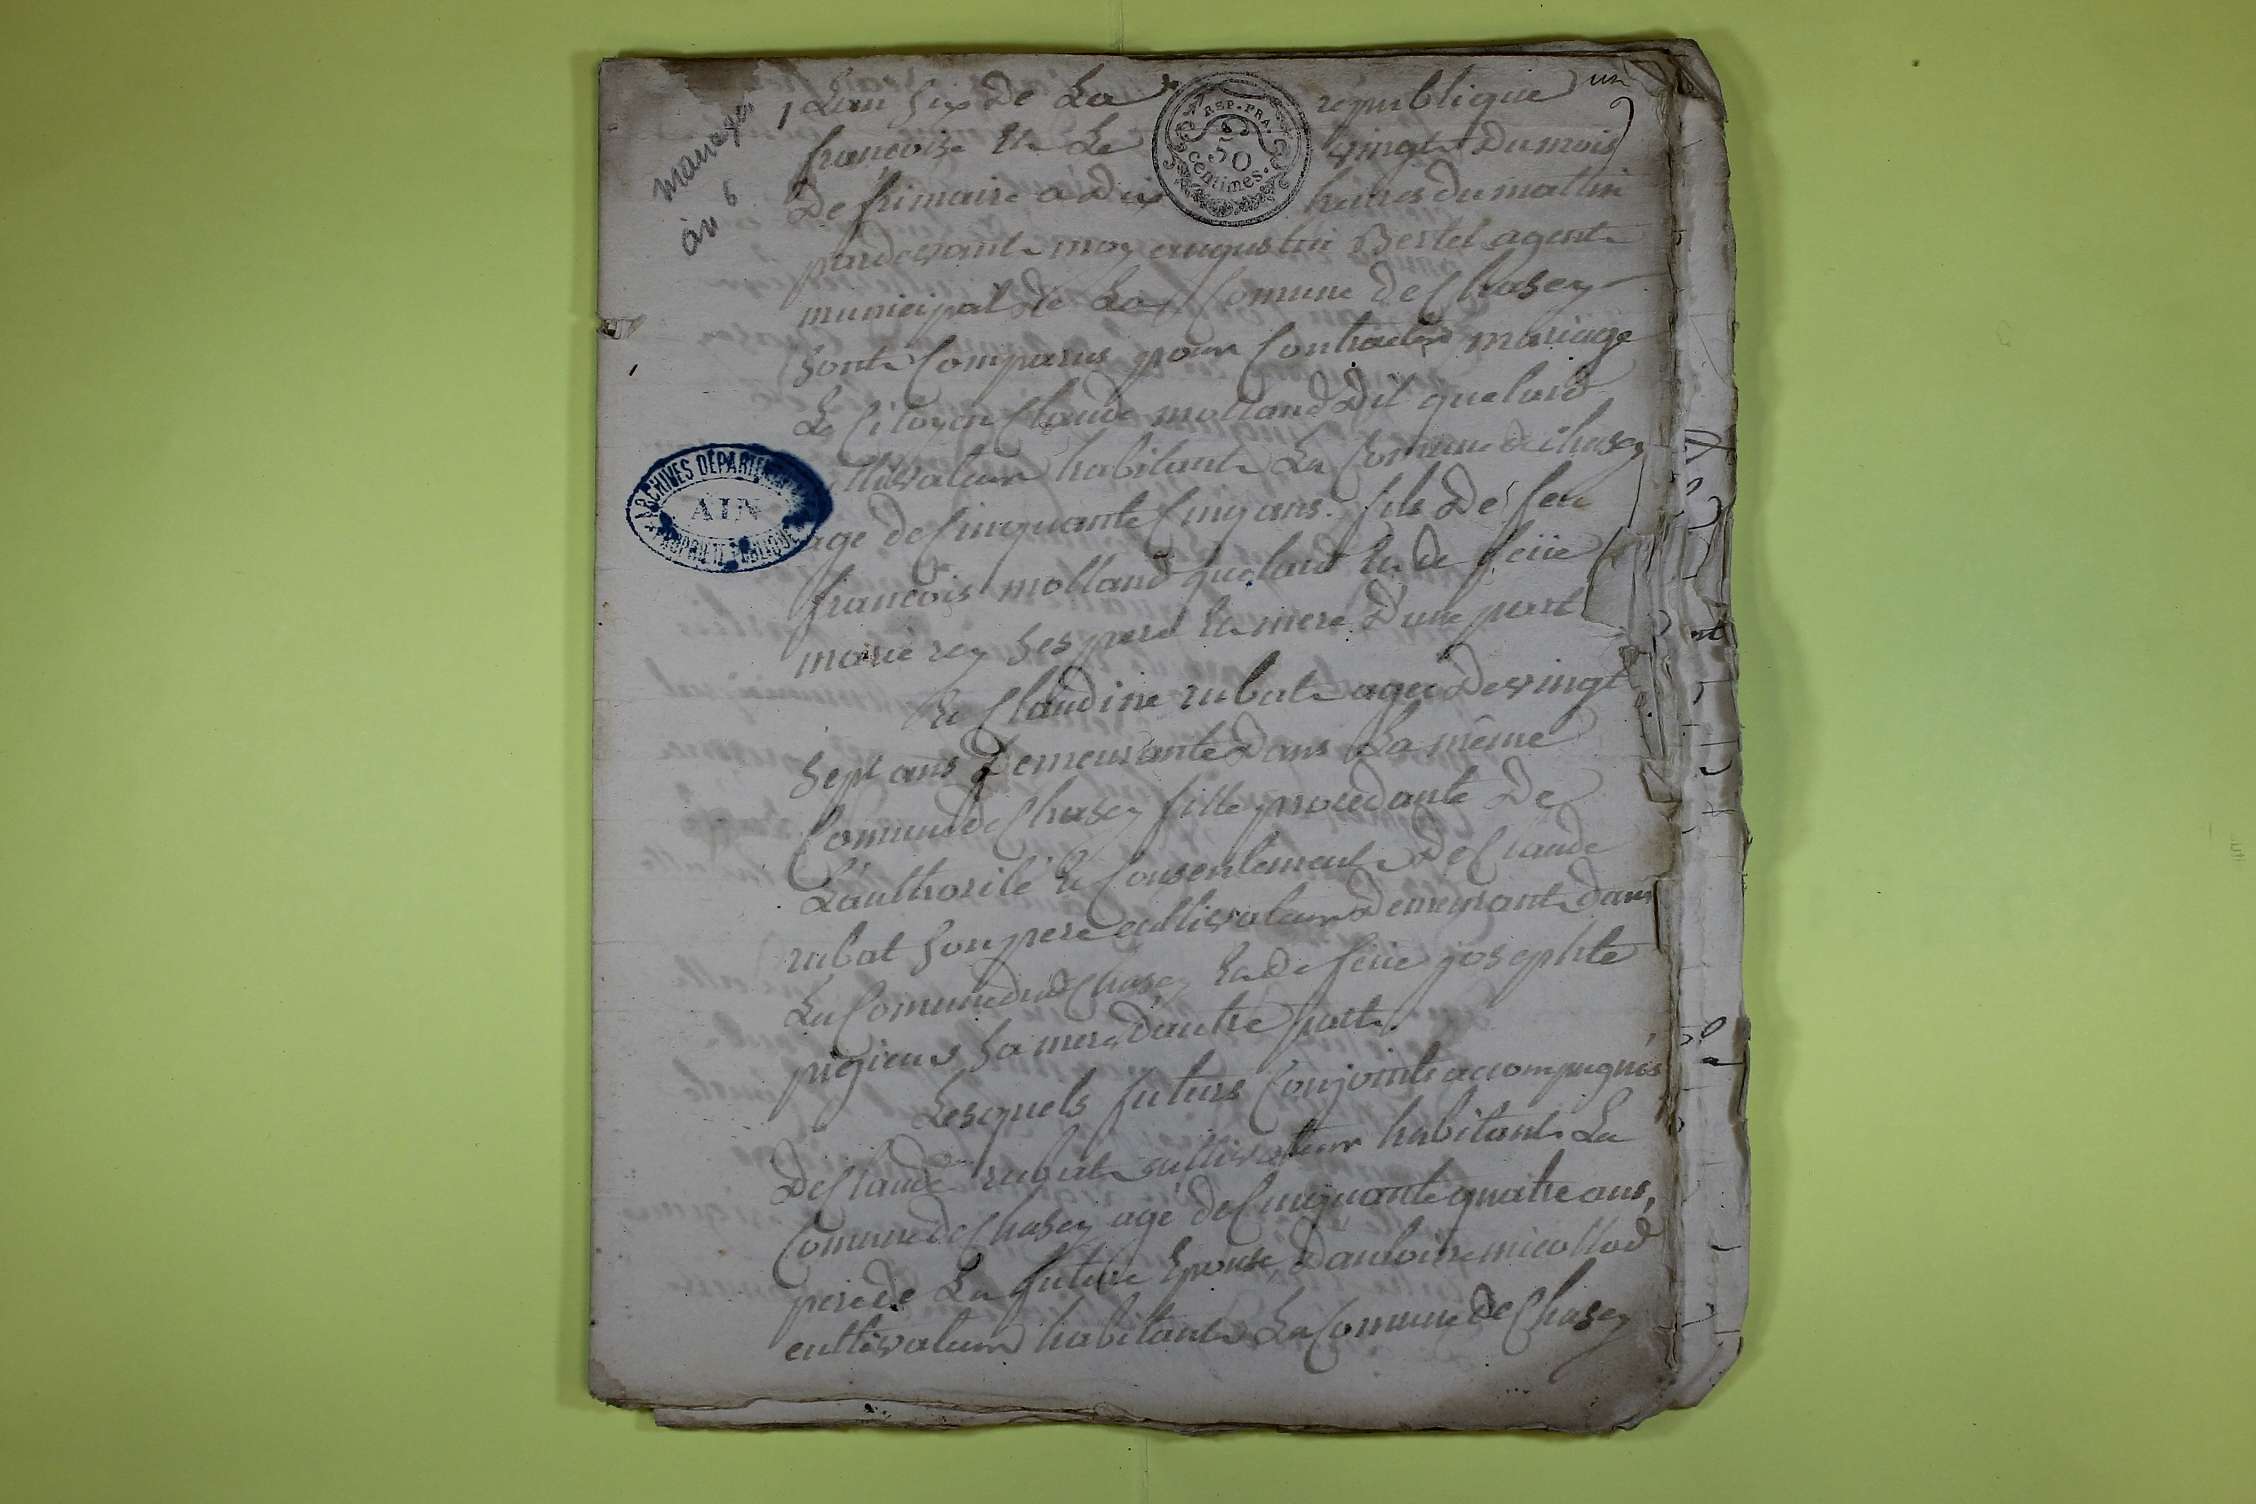 mariages
an 6
1 Lan six de La république un
françoise et Le vingt du mois
De frimaire a dix heures du mattin
pardevant moy augustin Bertet agent
municipal de La Comune de Chasey
sont Comparus pour Contracter mariage
Le Citoyen Claude molland dit quelard
cultivateur habitant La Comune de chasey
age de Cinquante Cinq ans fils de feu
françois molland quelard et de feüe
marie rey ses pere et mere d'une part
et Claudine rubat agée de vingt
sept ans demeurante dans La même
Comune de Chasey fille procedante de
L'authorité et Consentement de Claude
rubat son pere cultivateur demeurant dans
La Comune dud Chasey et de feüe josephte
pigieux sa mere d'autre part.
Lesquels futurs Conjoints accompagnés
de Claude rubat cultivateur habitant La
Comune de Chasey agé de Cinquante quatre ans,
pere de La future Epouse, d'antoine micollod
cultivateur habitant La Comune de Chasey
REP. FRA.
50
centimes.
ARCHIVES DÉPARTEMENTALES
AIN
PROPRIÉTÉ PUBLIQUE